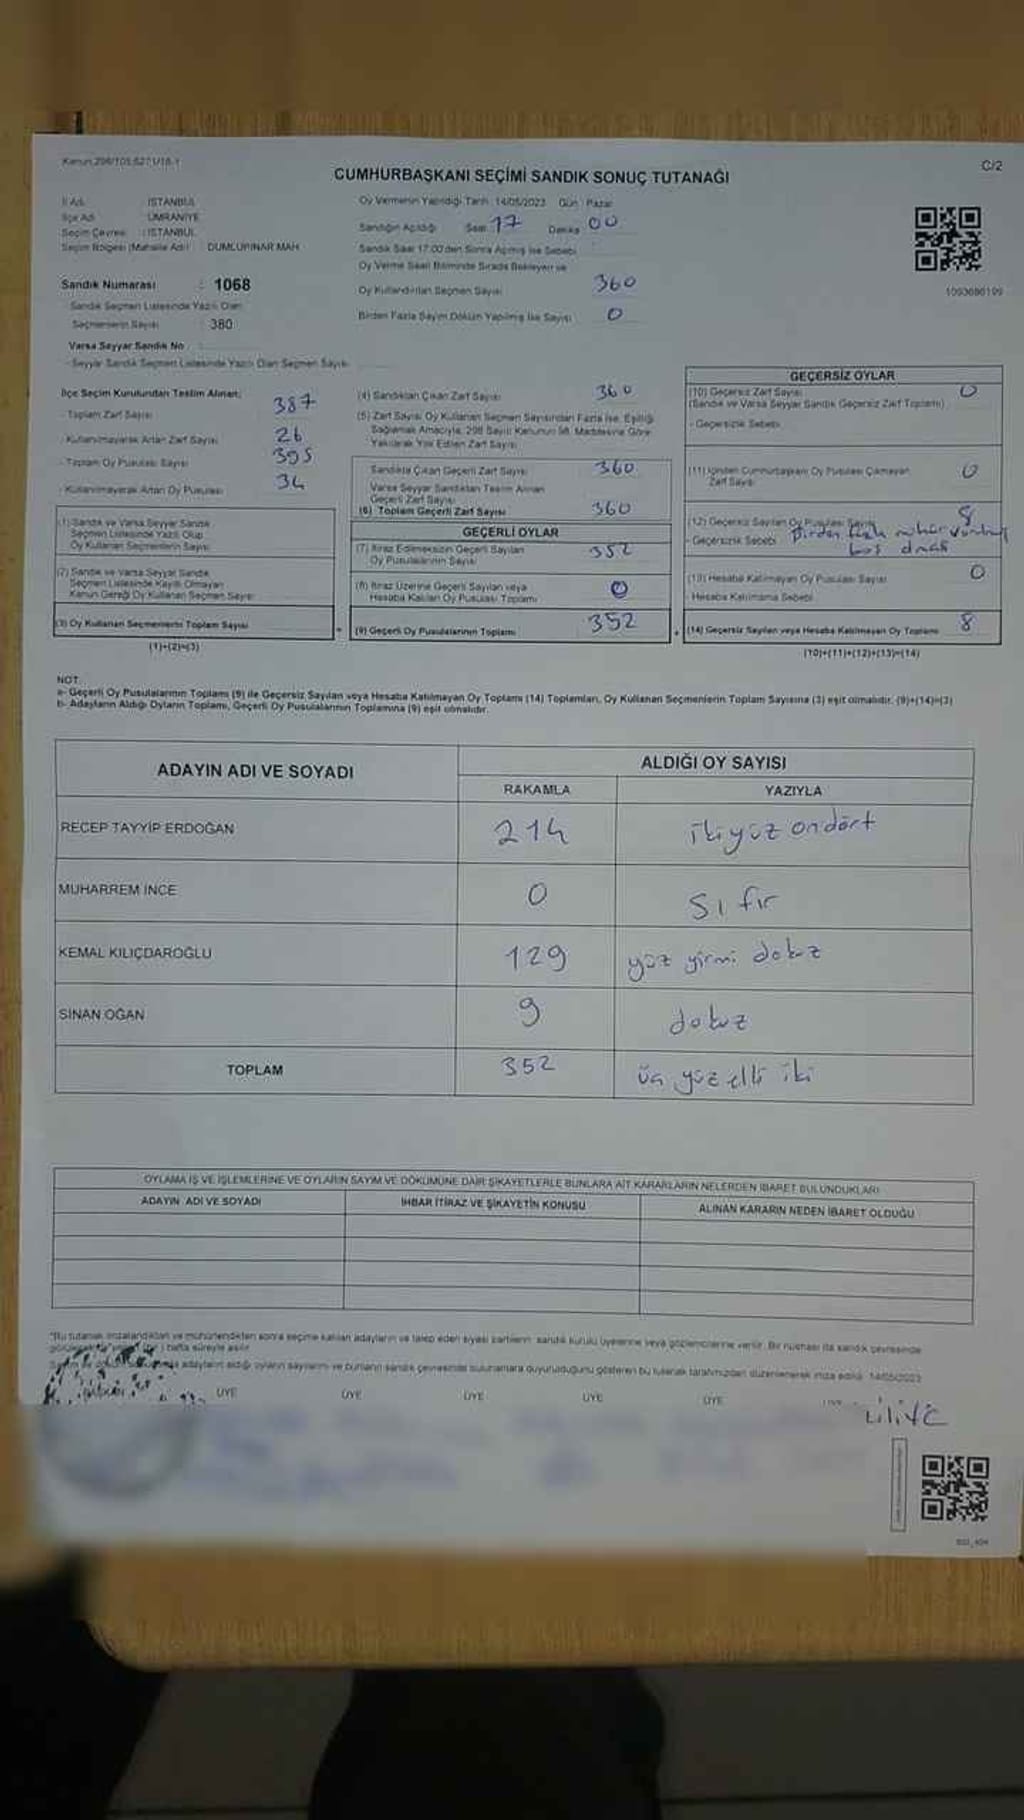 Kanun:298/105,6271/18-1
C/2
CUMHURBAŞKANI SEÇİMİ SANDIK SONUÇ TUTANAĞI
İl Adı : İSTANBUL
İlçe Adı : ÜMRANİYE
Seçim Çevresi : İSTANBUL
Seçim Bölgesi (Mahalle Adı) : DUMLUPINAR MAH.
Oy Vermenin Yapıldığı Tarih: 14/05/2023 Gün: Pazar
Sandığın Açıldığı Saat 17 Dakika 00
Sandık Saat 17:00'den Sonra Açılmış İse Sebebi
Oy Verme Saati Bitiminde Sırada Bekleyen ve
Oy Kullandırılan Seçmen Sayısı 360
Birden Fazla Sayım Döküm Yapılmış İse Sayısı 0
1093686199
Sandık Numarası : 1068
Sandık Seçmen Listesinde Yazılı Olan
Seçmenlerin Sayısı : 380
Varsa Seyyar Sandık No
- Seyyar Sandık Seçmen Listesinde Yazılı Olan Seçmen Sayısı
İlçe Seçim Kurulundan Teslim Alınan;
- Toplam Zarf Sayısı 387
- Kullanılmayarak Artan Zarf Sayısı 26
- Toplam Oy Pusulası Sayısı 395
- Kullanılmayarak Artan Oy Pusulası 34
(1) Sandık ve Varsa Seyyar Sandık
Seçmen Listesinde Yazılı Olup
Oy Kullanan Seçmenlerin Sayısı
(2) Sandık ve Varsa Seyyar Sandık
Seçmen Listesinde Kayıtlı Olmayan
Kanun Gereği Oy Kullanan Seçmen Sayısı
(3) Oy Kullanan Seçmenlerin Toplam Sayısı
(1)+(2)=(3)
(4) Sandıktan Çıkan Zarf Sayısı 360
(5) Zarf Sayısı Oy Kullanan Seçmen Sayısından Fazla İse, Eşitliği
Sağlamak Amacıyla, 298 Sayılı Kanunun 98. Maddesine Göre
Yakılarak Yok Edilen Zarf Sayısı
Sandıkta Çıkan Geçerli Zarf Sayısı 360
Varsa Seyyar Sandıktan Teslim Alınan
Geçerli Zarf Sayısı
(6) Toplam Geçerli Zarf Sayısı 360
GEÇERLİ OYLAR
(7) İtiraz Edilmeksizin Geçerli Sayılan
Oy Pusulalarının Sayısı 352
(8) İtiraz Üzerine Geçerli Sayılan veya
Hesaba Katılan Oy Pusulası Toplamı 0
(9) Geçerli Oy Pusulalarının Toplamı 352
GEÇERSİZ OYLAR
(10) Geçersiz Zarf Sayısı 0
(Sandık ve Varsa Seyyar Sandık Geçersiz Zarf Toplamı)
- Geçersizlik Sebebi
(11) İçinden Cumhurbaşkanı Oy Pusulası Çıkmayan
Zarf Sayısı 0
(12) Geçersiz Sayılan Oy Pusulası Sayısı 8
- Geçersizlik Sebebi Birden fazla mühür
boş
(13) Hesaba Katılmayan Oy Pusulası Sayısı 0
Hesaba Katılmama Sebebi
(14) Geçersiz Sayılan veya Hesaba Katılmayan Oy Toplamı 8
(10)+(11)+(12)+(13)=(14)
NOT:
a- Geçerli Oy Pusulalarının Toplamı (9) ile Geçersiz Sayılan veya Hesaba Katılmayan Oy Toplamı (14) Toplamları, Oy Kullanan Seçmenlerin Toplam Sayısına (3) eşit olmalıdır. (9)+(14)=(3)
b- Adayların Aldığı Oyların Toplamı, Geçerli Oy Pusulalarının Toplamına (9) eşit olmalıdır.
ADAYIN ADI VE SOYADI
ALDIĞI OY SAYISI
RAKAMLA YAZIYLA
RECEP TAYYİP ERDOĞAN 214 ikiyüz ondört
MUHARREM İNCE 0 sıfır
KEMAL KILIÇDAROĞLU 129 yüz yirmi dokuz
SİNAN OĞAN 9 dokuz
TOPLAM 352 üç yüz elli iki
OYLAMA İŞ VE İŞLEMLERİNE VE OYLARIN SAYIM VE DÖKÜMÜNE DAİR ŞİKAYETLERLE BUNLARA AİT KARARLARIN NELERDEN İBARET BULUNDUKLARI
ADAYIN ADI VE SOYADI İHBAR İTİRAZ VE ŞİKAYETİN KONUSU ALINAN KARARIN NEDEN İBARET OLDUĞU
*Bu tutanak imzalandıktan ve mühürlendikten sonra seçime katılan adayların ve talep eden siyasi partilerin sandık kurulu üyelerine veya gözlemcilerine verilir. Bir nüshası da sandık çevresinde
bir hafta süreyle asılır.
adayların aldığı oyların sayılarını ve bunların sandık çevresinde bulunanlara duyurulduğunu gösteren bu tutanak tarafımızdan düzenlenerek imza edildi. 14/05/2023
ÜYE ÜYE ÜYE ÜYE ÜYE